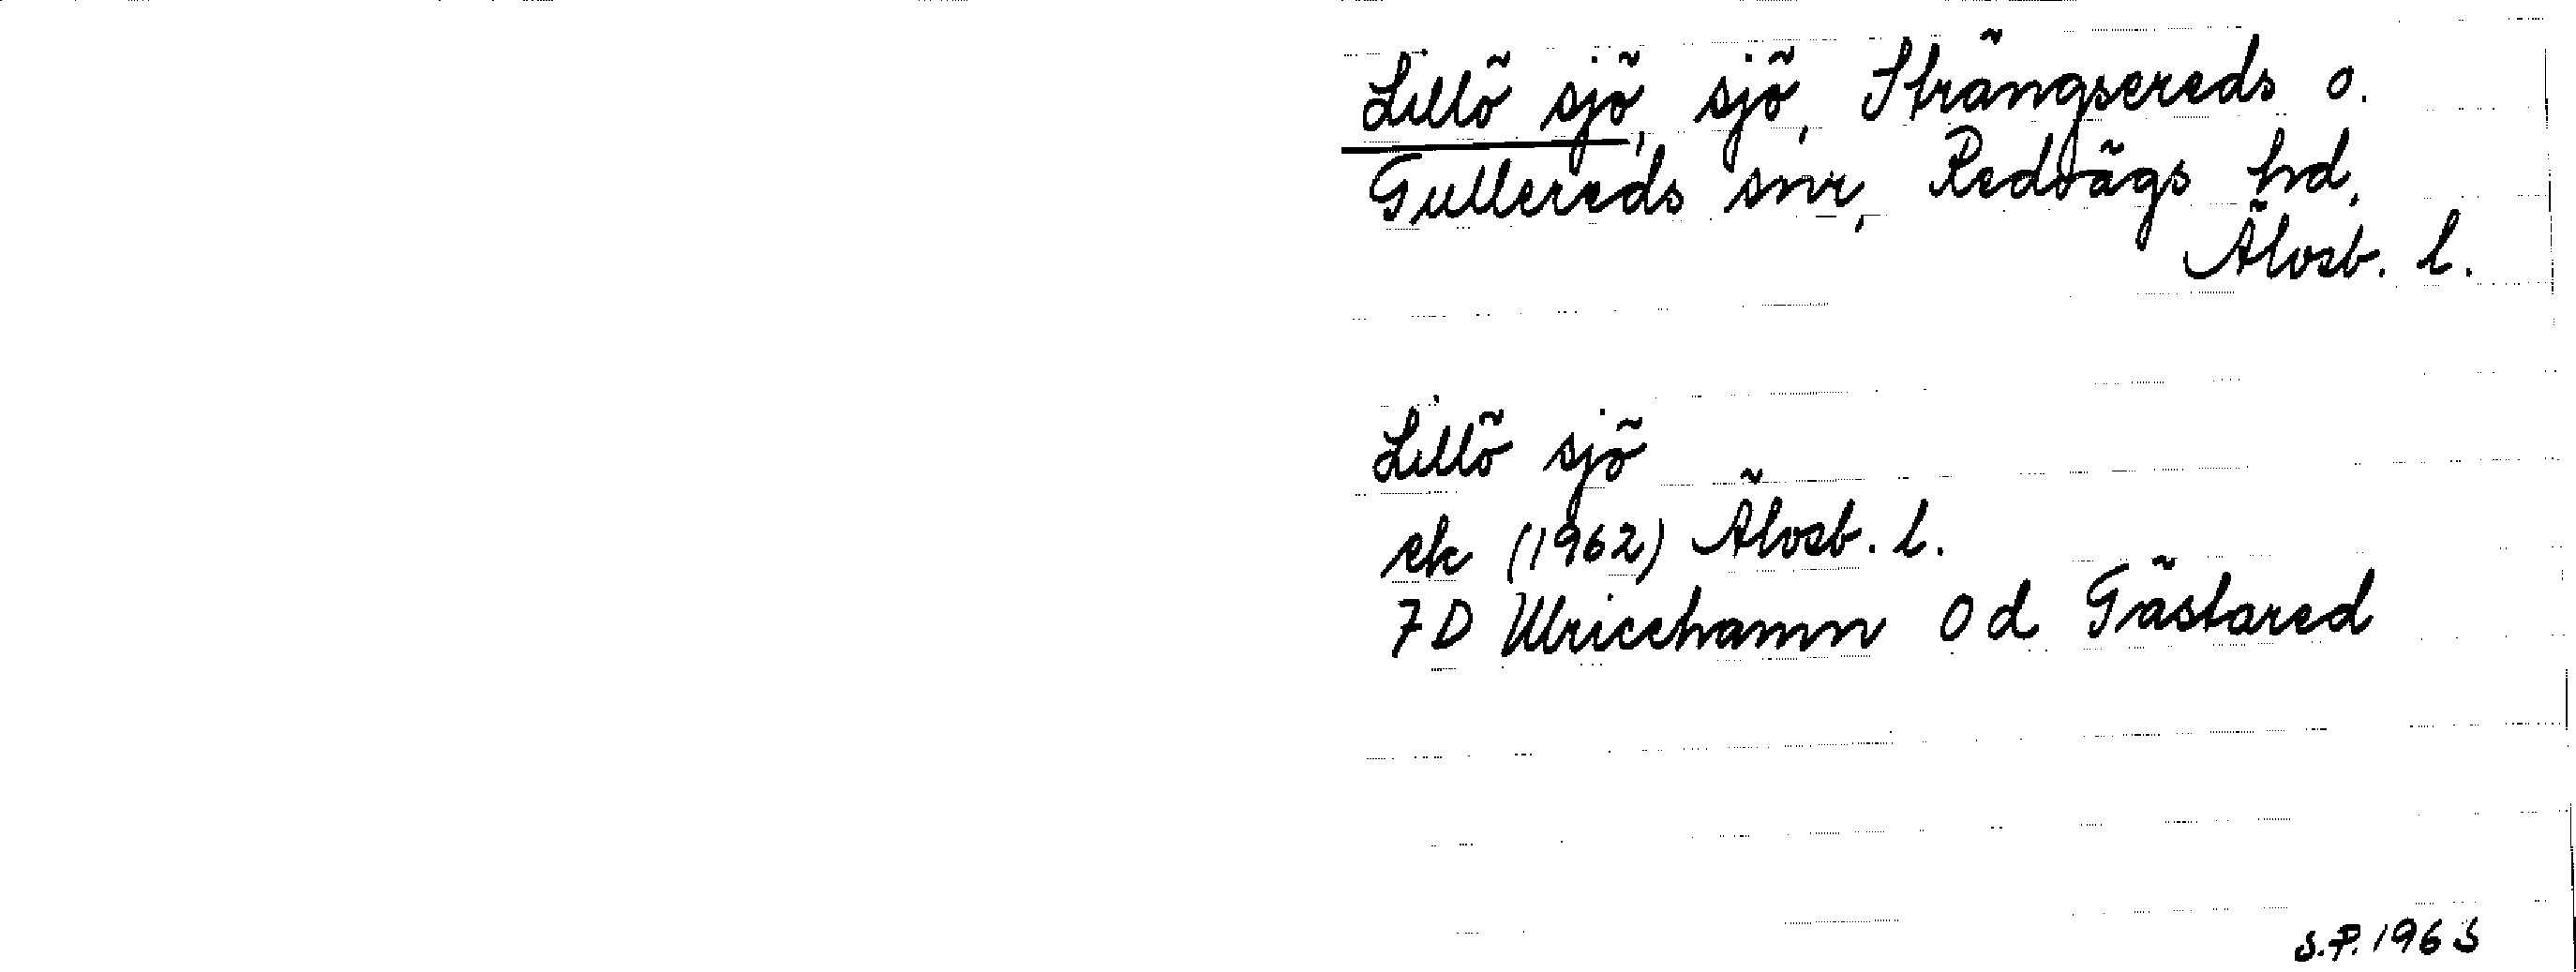 Lillö sjö, sjö, Strängsereds o.
Gullereds snr, Redvägs hd,
Älvsb. l.
Lillö sjö
ek (1962) Älvsb. l.
7D Ulricehamn 0d Gästared
S.P. 1963